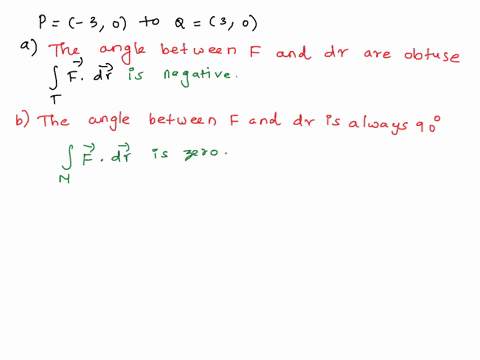 P = (-3, 0) to Q = (3, 0)
a) The angle between F and dr are obtuse
∫_T F⃗ . dr⃗ is negative.
b) The angle between F and dr is always 90°
∫_M F⃗ . dr⃗ is zero.